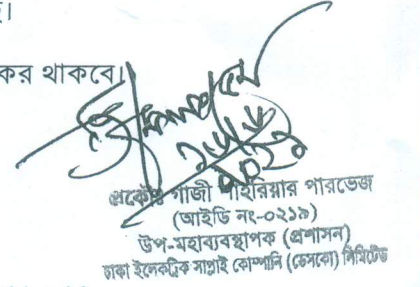 কর থাকবে।
প্রকৌঃ গাজী শাহরিয়ার পারভেজ
(আইডি নং-০২১৯)
উপ-মহাব্যবস্থাপক (প্রশাসন)
ঢাকা ইলেকট্রিক সাপ্লাই কোম্পানি (ডেসকো) লিমিটেড